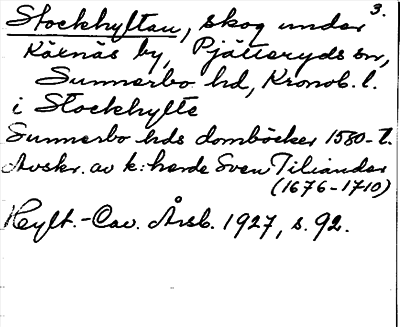 3.
Stockhyltan, skog under
Kärnäs by, Pjätteryds sn,
Sunnerbo hd, Kronob. l.
i Stockhylte
Sunnerbo hds domböcker 1580-t.
Avskr. av k:herde Sven Tiliander
(1676-1710)
Hylt.-Cav. Årsb. 1927, s. 92.